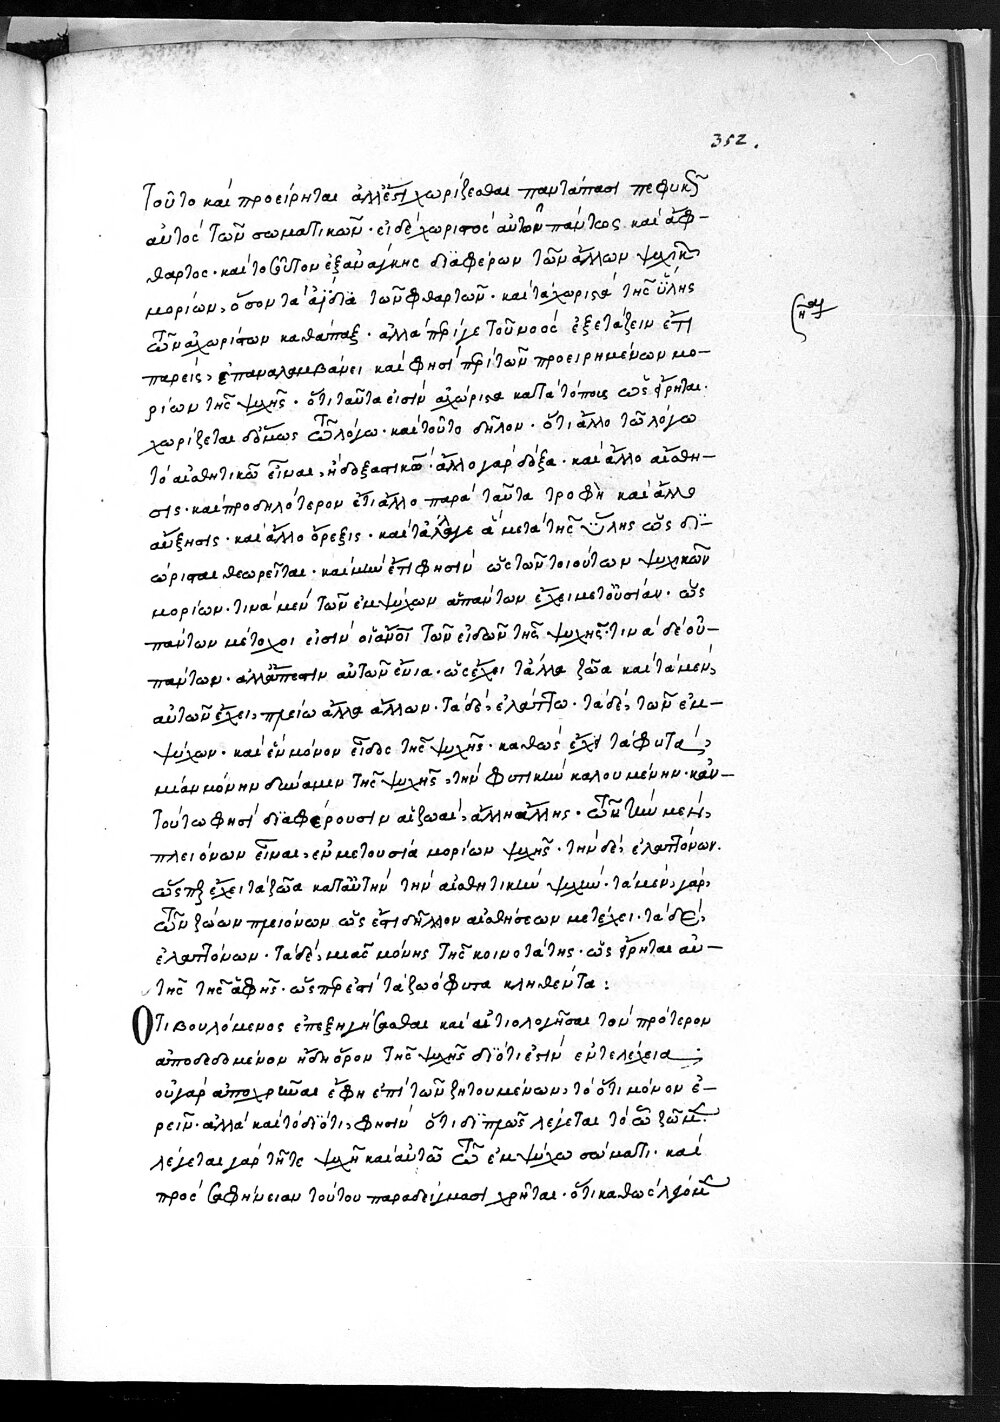 352.
τοῦτο καὶ προείρηται ἀλλ' ἔστι χωρίζεσθαι παντάπασι πεφυκὸς
αὐτὸς τῶν σωματικῶν· εἰ δὲ χωριστός αὐτῶν πάντως καὶ ἄφ-
θαρτος· καὶ τοσοῦτον ἐξανάγκης διαφέρων τῶν ἄλλων ψυχικῶν
μορίων, ὅσον τὰ ἀΐδια τῶν φθαρτῶν· καὶ τὰ χωριστὰ τῆς ὕλης
τῶν ἀχωρίστων καθάπαξ· ἀλλὰ περί γε τοῦ νοὸς ἐξετάζειν ἔτι
παρεὶς, ἐπαναλαμβάνει καὶ φησὶ περὶ τῶν προειρημένων μο-
ρίων τῆς ψυχῆς· ὅτι ταῦτα εἰσὶν ἀχώριστα κατὰ τόπους ὡς εἴρηται·
χωρίζεται δ' ὅμως τῷ λόγω· καὶ τοῦτο δῆλον· ὅτι ἄλλο τῶ λόγω
τὸ αἰσθητικῶ εἶναι, ἢ δοξαστικῶ· ἄλλο γὰρ δόξα· καὶ ἄλλο αἴσθη-
σις· καὶ προδηλότερον ἔτι ἄλλο παρὰ ταῦτα τροφὴ καὶ ἄλλο
αὔξησις· καὶ ἄλλο ὄρεξις· καὶ τἄλλά γε ἃ μετὰ τῆς ὕλης ὡς δι-
ώρισται θεωρεῖται· καὶ μὴν ἔτι φησὶν ὡς τῶν τοιούτων ψυχικῶν
μορίων· τινὰ μὲν τῶν ἐμψύχων ἁπάντων ἔχει μετουσίαν· ὡς
πάντων μέτοχοι εἰσὶν οἱ ἄνοι τῶν εἰδῶν τῆς ψυχῆς· τινὰ δὲ οὐ-
πάντων· ἀλλ' ἄπεστιν αὐτῶν ἔνια· ὡς ἔχει τἄλλα ζῶα καὶ τὰ μὲν,
αὐτῶν ἔχει, πλείω ἄλλα ἄλλων· τὰ δὲ, ἐλάττω· τὰ δὲ, τῶν ἐμ-
ψύχων· καὶ ἓν μόνον εἶδος τῆς ψυχῆς· καθὼς ἔχει τὰ φυτὰ,
μίαν μόνην δύναμιν τῆς ψυχῆς, τὴν φυτικὴν καλουμένην· κἀν-
τούτω φησὶ διαφέρουσιν αἱ ζωαὶ, ἄλλη ἄλλης· τῶ τὴν μὲν,
πλειόνων εἶναι, ἐν μετουσία μορίων ψυχῆς· τὴν δὲ, ἐλαττόνων.
ὥσπερ ἔχει τὰ ζῶα κατ' αὐτὴν τὴν αἰσθητικὴν ψυχήν· τὰ μὲν, γὰρ,
τῶν ζώων πλειόνων ὡς ἔστι δῆλον αἰσθήσεων μετέχει· τὰ δὲ,
ἐλαττόνων· τὰ δὲ, μιᾶς μόνης τῆς κοινοτάτης· ὡς εἴρηται αὐ-
τῆς τῆς ἁφῆς· ὥσπερ ἐστὶ τὰ ζωόφυτα κληθέντα:
Ὅτι βουλόμενος ἐπεξηγήσασθαι καὶ αἰτιολογῆσαι τὸν πρότερον
ἀποδεδομένον ἤδη ὅρον τῆς ψυχῆς διότι ἐστὶν ἐντελέχεια·
οὐ γὰρ ἀποχρῶσαι ἔφη ἐπὶ τῶν ζητουμένων, τὸ ὅτι μόνον ἐ-
ρεῖν· ἀλλὰ καὶ τὸ διότι, φησὶν ὅτι διττῶς λέγεται τὸ ὧ ζῶμεν·
λέγεται γὰρ τῆτε ψυχῆ καὶ αὐτῶ τῶ ἐμψύχω σώματι· καὶ
πρὸς σαφήνειαν τούτου παραδείγμασι χρῆται· ὅτι καθὼς λέγομεν